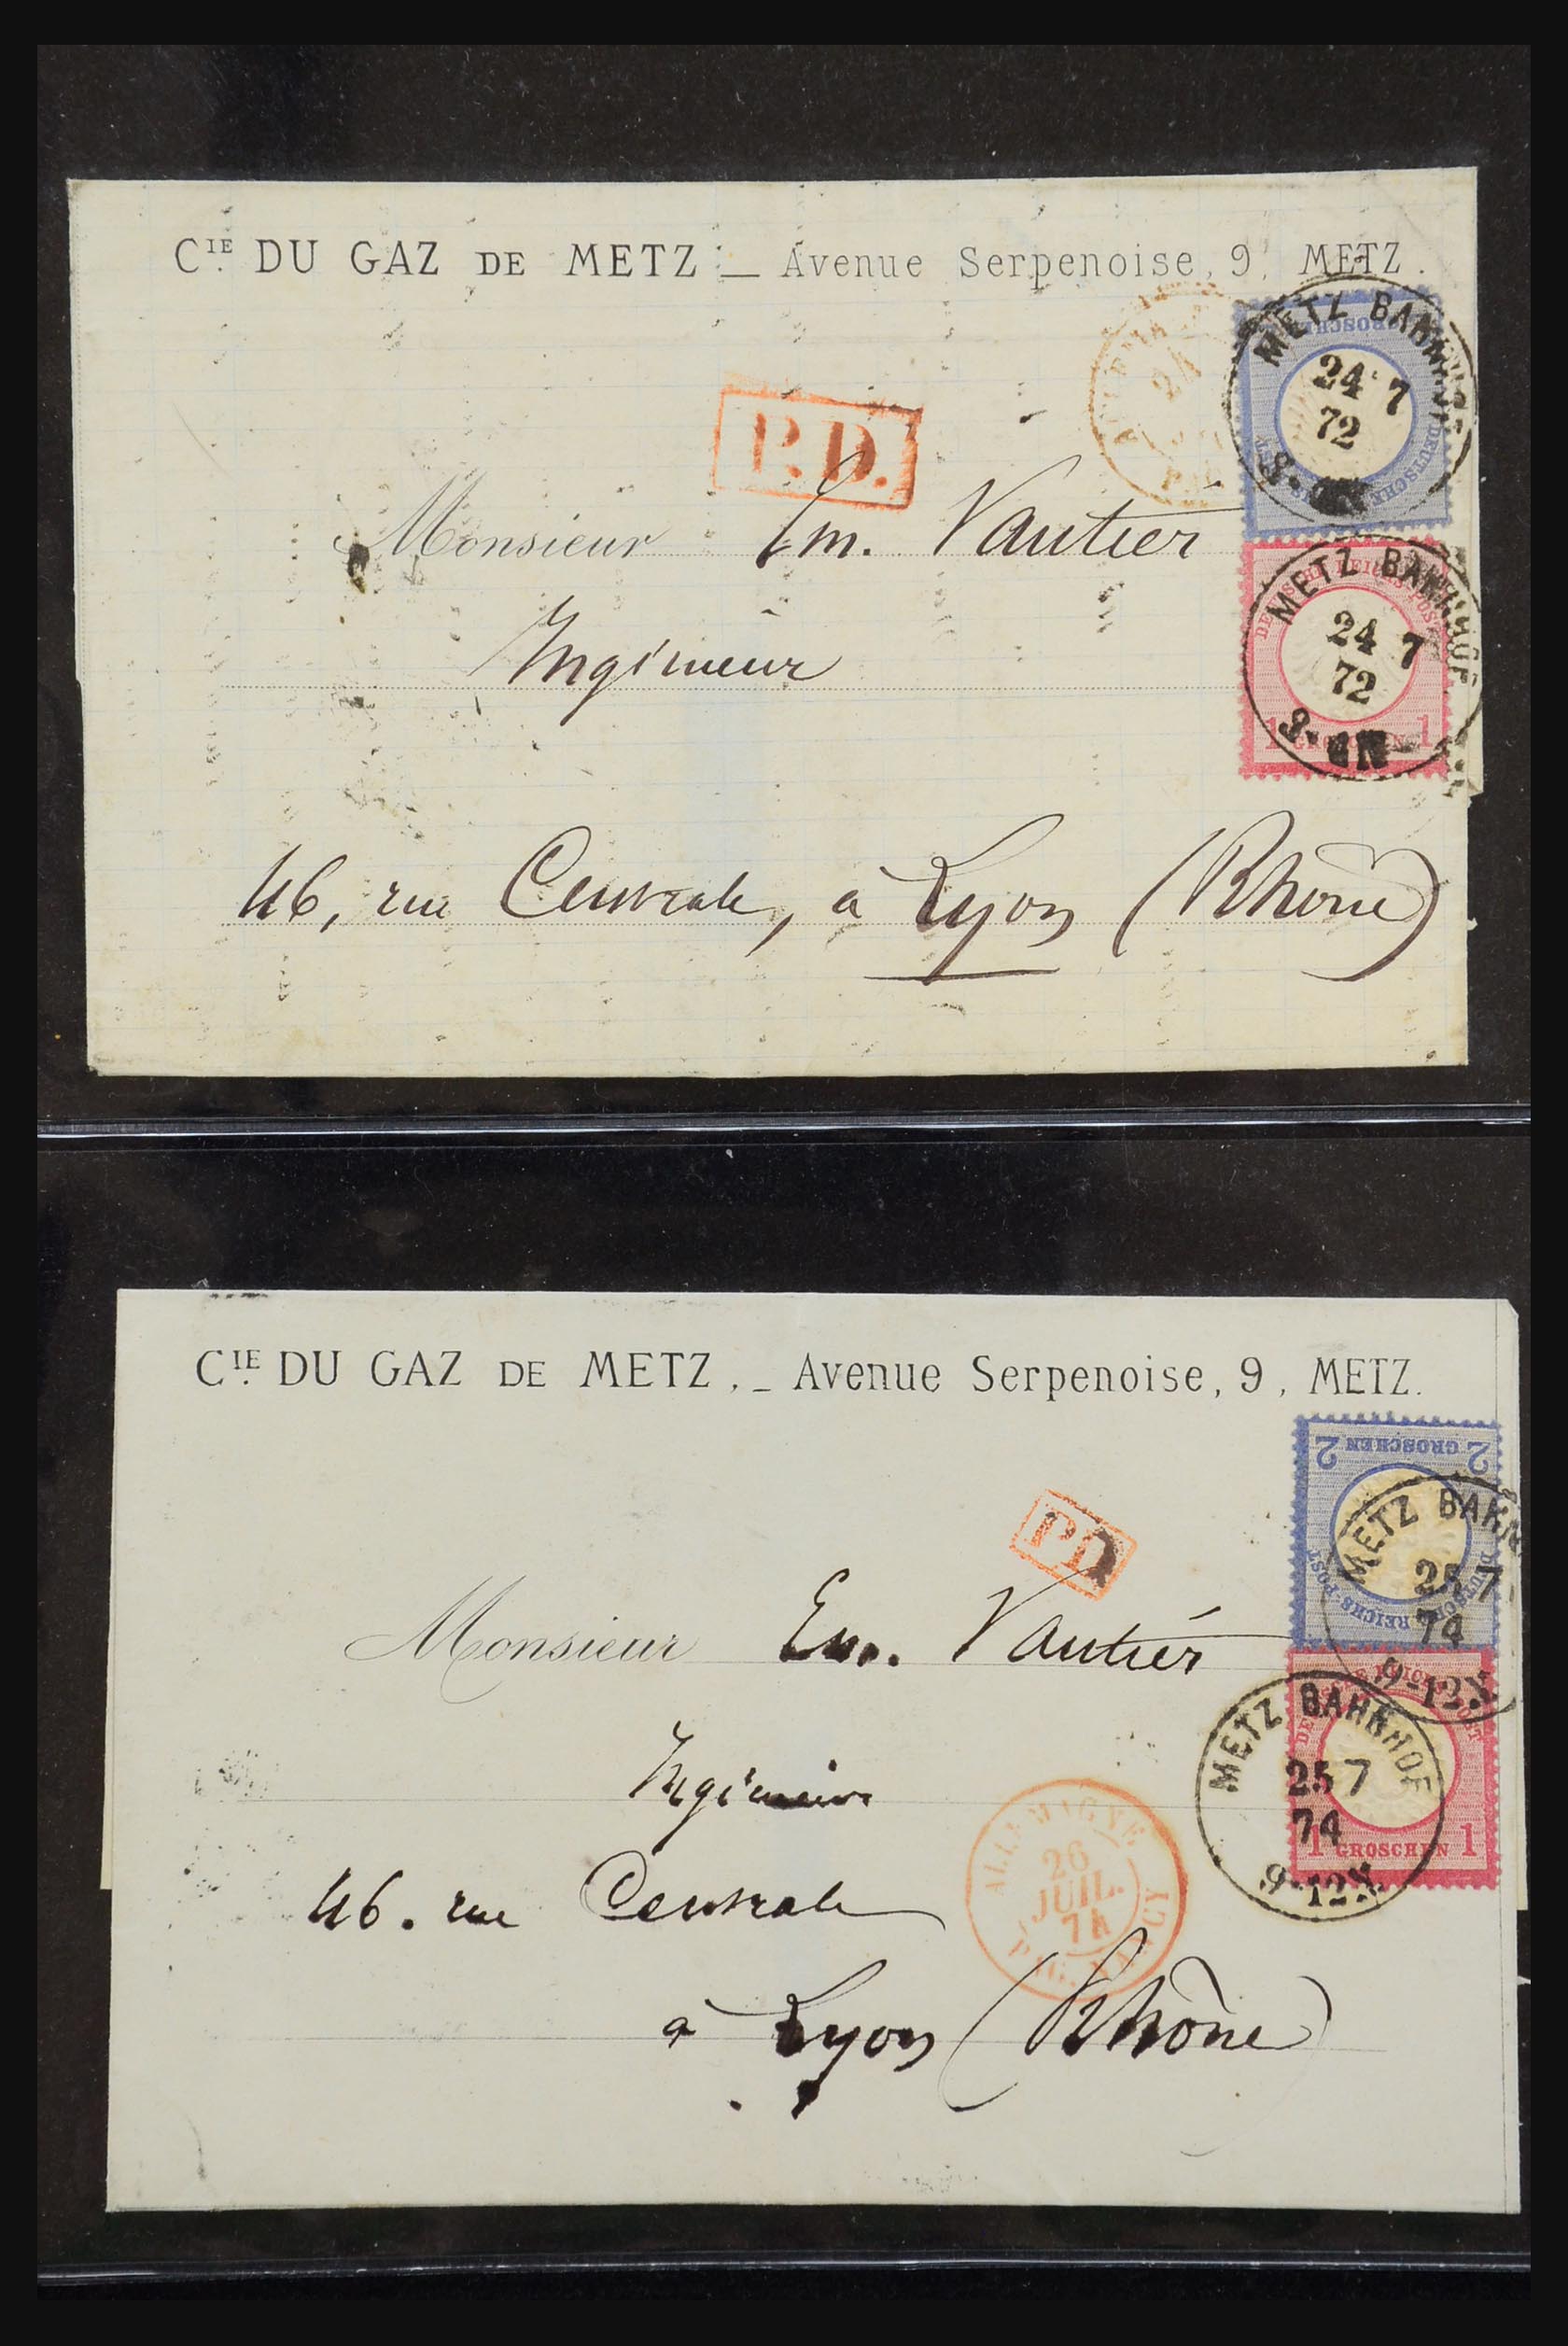 CIE DU GAZ DE METZ _ Avenue Serpenoise, 9, METZ.
GROSCHEN
DEUTSCHE
METZ BAHNHOF
24 7
72
P.D.
24
Monsieur Em. Vautier
DEUTSCHE REICHS-POST
1 GROSCHEN 1
METZ BAHNHOF
24 7
72
Ingénieur
46, rue Centrale, à Lyon (Rhône)
CIE DU GAZ DE METZ. _ Avenue Serpenoise, 9, METZ.
2 GROSCHEN 2
DEUTSCHE REICHS-POST
METZ BAHN
25 7
74
9-12V.
PD
Monsieur Em. Vautier
1 GROSCHEN 1
METZ BAHNHOF
25 7
74
9-12V.
Ingénieur
ALLEMAGNE
26
JUIL.
74
NANCY
46. rue Centrale
à Lyon (Rhône)